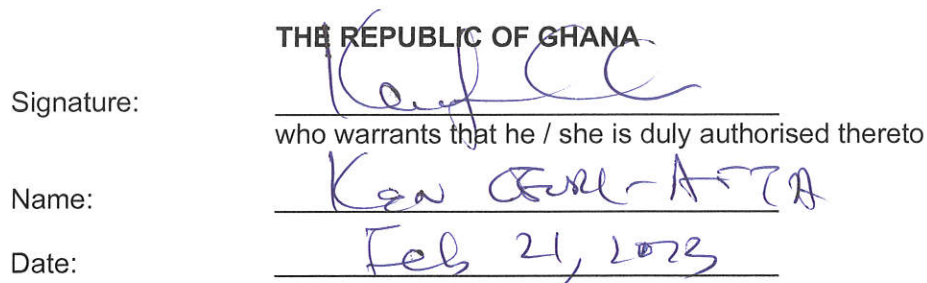 THE REPUBLIC OF GHANA
Signature:
who warrants that he / she is duly authorised thereto
Name: Ken OFORI-ATTA
Date: Feb 21, 2023